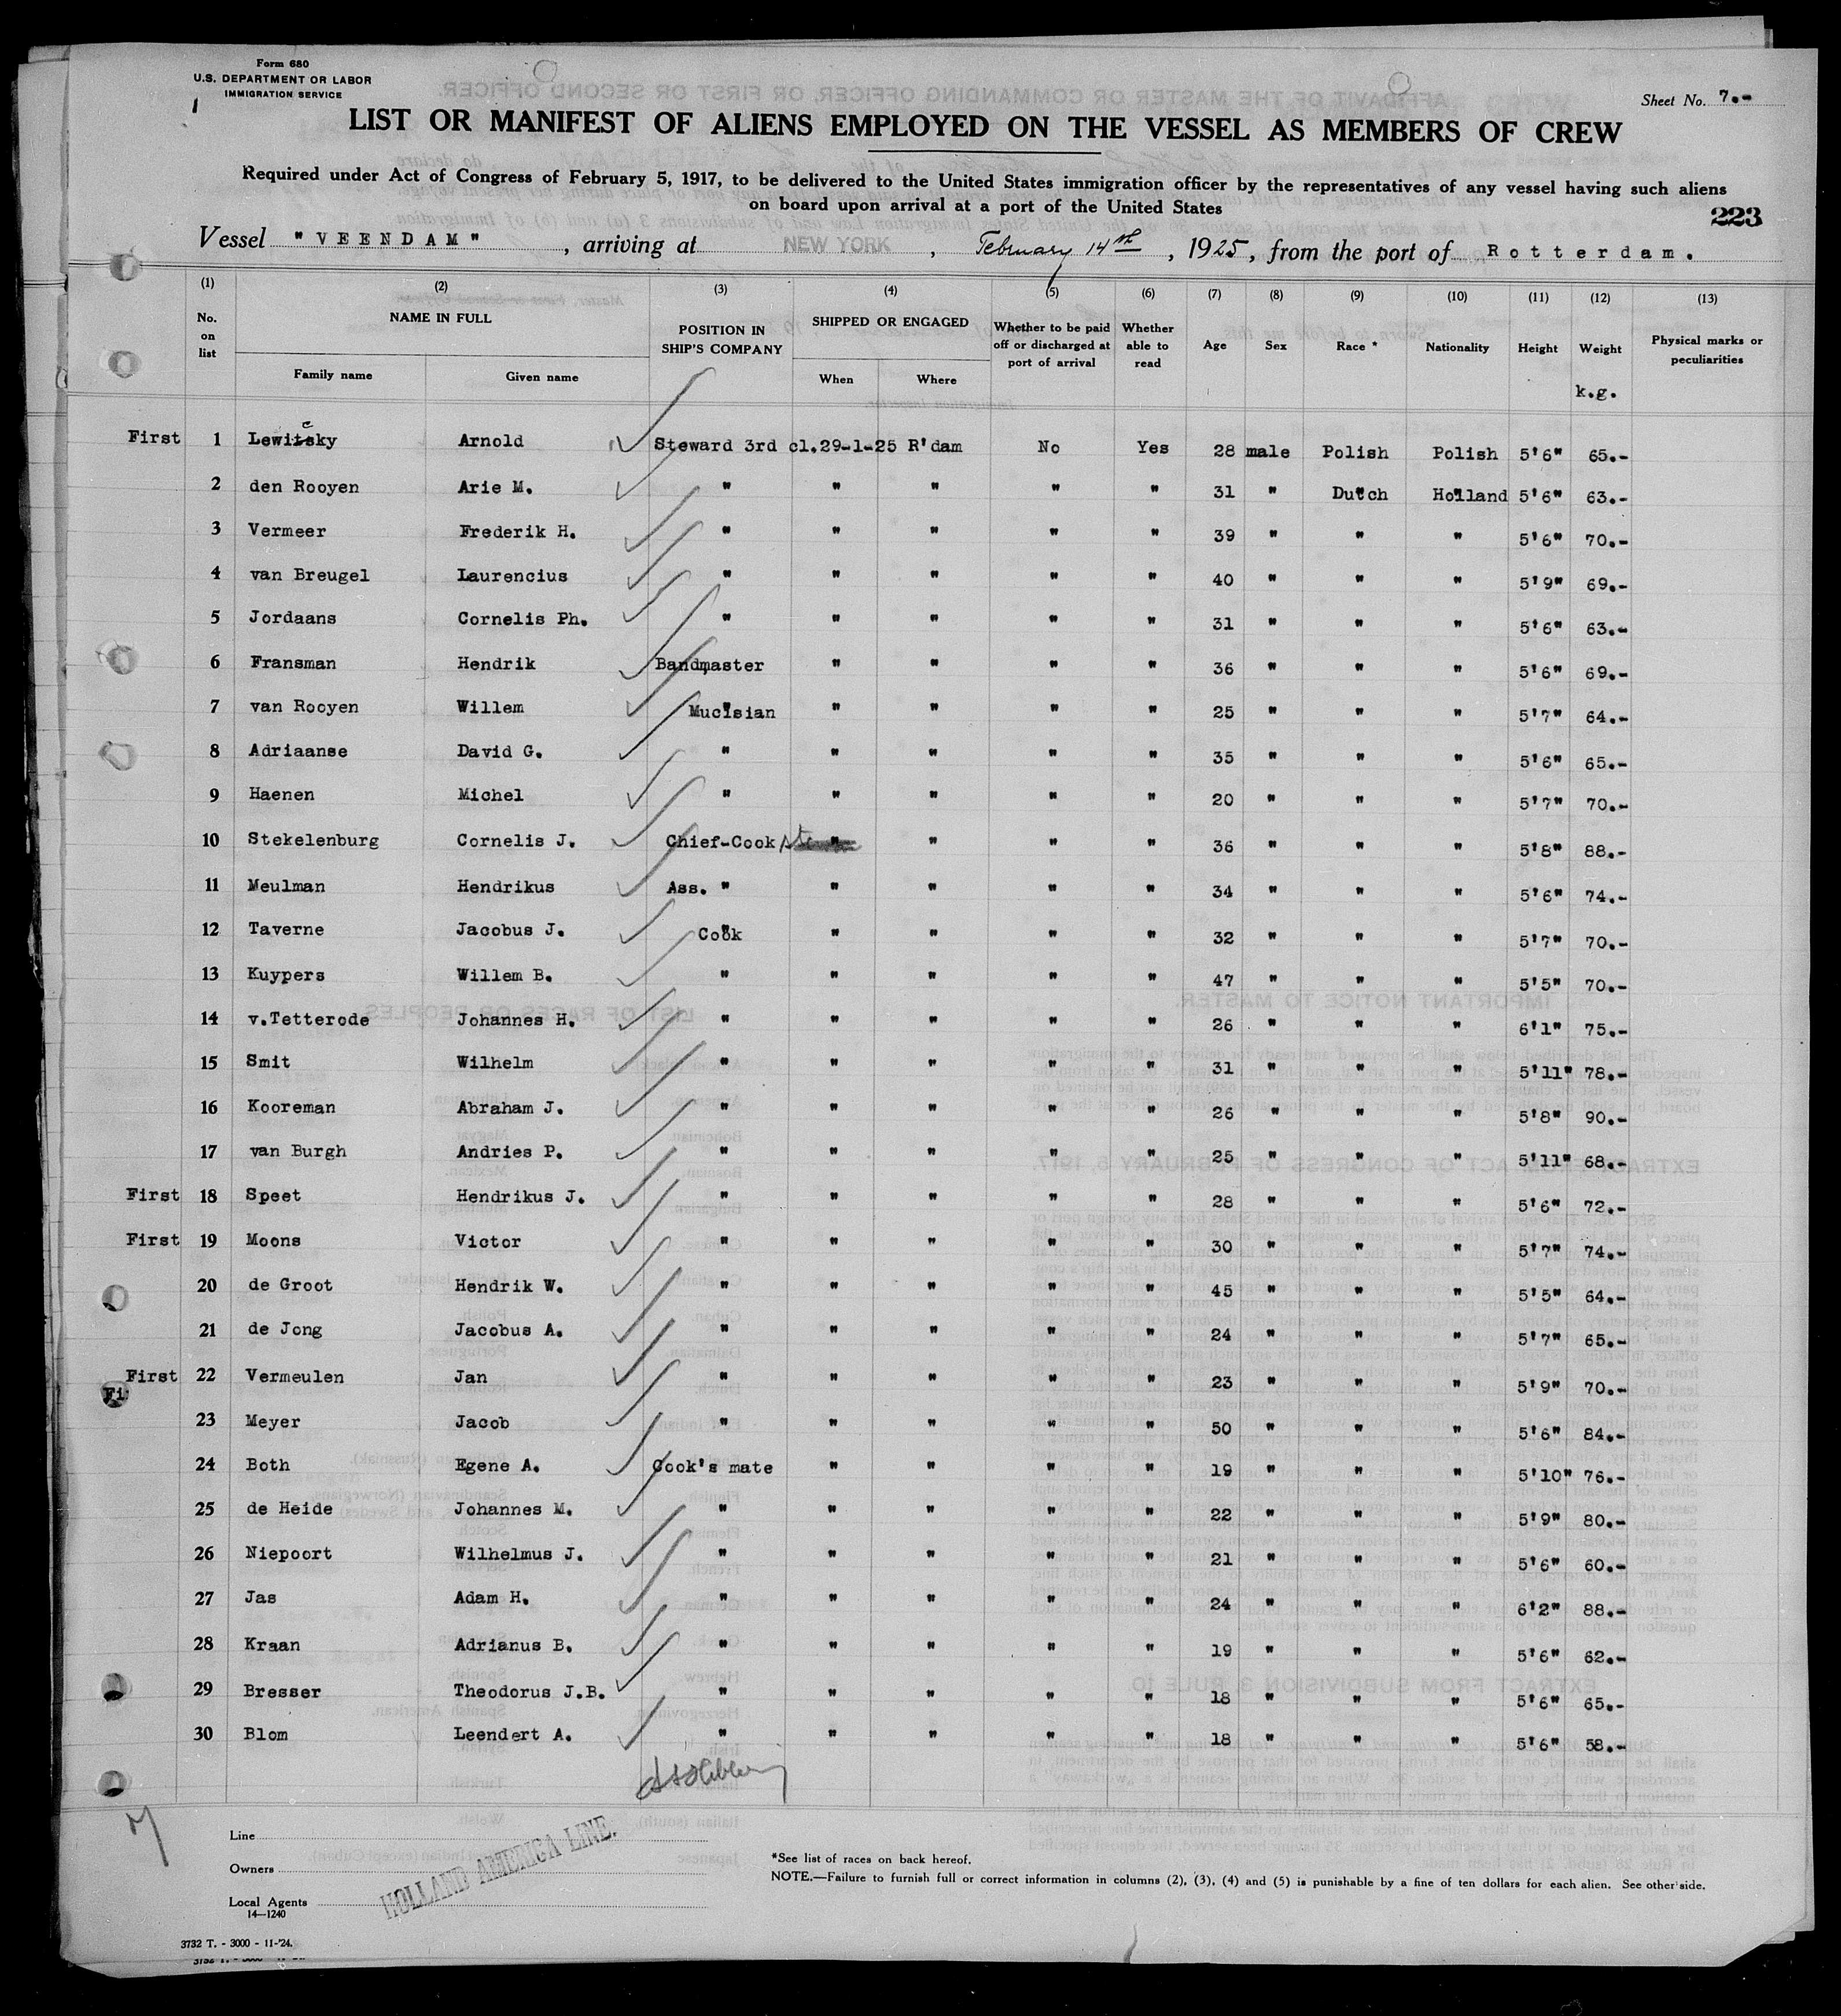 Form 680
U.S. DEPARTMENT OR LABOR
IMMIGRATION SERVICE
Sheet No. 7.-
LIST OR MANIFEST OF ALIENS EMPLOYED ON THE VESSEL AS MEMBERS OF CREW
Required under Act of Congress of February 5, 1917, to be delivered to the United States immigration officer by the representatives of any vessel having such aliens
on board upon arrival at a port of the United States
223
Vessel "VEENDAM", arriving at NEW YORK, February 14th, 1925, from the port of Rotterdam.
(1) (2) (3) (4) (5) (6) (7) (8) (9) (10) (11) (12) (13)
No. on list NAME IN FULL Family name Given name POSITION IN SHIP'S COMPANY SHIPPED OR ENGAGED When Where Whether to be paid off or discharged at port of arrival Whether able to read Age Sex Race * Nationality Height Weight Physical marks or peculiarities
k.g.
First 1 Lewitsky Arnold Steward 3rd cl. 29-1-25 R'dam No Yes 28 male Polish Polish 5'6" 65.-
2 den Rooyen Arie M. " " " " " 31 " Dutch Holland 5'6" 63.-
3 Vermeer Frederik H. " " " " " 39 " " " 5'6" 70.-
4 van Breugel Laurencius " " " " " 40 " " " 5'9" 69.-
5 Jordaans Cornelis Ph. " " " " " 31 " " " 5'6" 63.-
6 Fransman Hendrik Bandmaster " " " " 36 " " " 5'6" 69.-
7 van Rooyen Willem Mucisian " " " " 25 " " " 5'7" 64.-
8 Adriaanse David G. " " " " " 35 " " " 5'6" 65.-
9 Haenen Michel " " " " " 20 " " " 5'7" 70.-
10 Stekelenburg Cornelis J. Chief-Cook " " " " 36 " " " 5'8" 88.-
11 Meulman Hendrikus Ass. " " " " " 34 " " " 5'6" 74.-
12 Taverne Jacobus J. Cook " " " " 32 " " " 5'7" 70.-
13 Kuypers Willem B. " " " " " 47 " " " 5'5" 70.-
14 v.Tetterode Johannes H. " " " " " 26 " " " 6'1" 75.-
15 Smit Wilhelm " " " " " 31 " " " 5'11" 78.-
16 Kooreman Abraham J. " " " " " 26 " " " 5'8" 90.-
17 van Burgh Andries P. " " " " " 25 " " " 5'11" 68.-
First 18 Speet Hendrikus J. " " " " " 28 " " " 5'6" 72.-
First 19 Moons Victor " " " " " 30 " " " 5'7" 74.-
20 de Groot Hendrik W. " " " " " 45 " " " 5'5" 64.-
21 de Jong Jacobus A. " " " " " 24 " " " 5'7" 65.-
First 22 Vermeulen Jan " " " " " 23 " " " 5'9" 70.-
Fi
23 Meyer Jacob " " " " " 50 " " " 5'6" 84.-
24 Both Egene A. Cook's mate " " " " 19 " " " 5'10" 76.-
25 de Heide Johannes M. " " " " " 22 " " " 5'9" 80.-
26 Niepoort Wilhelmus J. " " " " " 21 " " " 5'6" 60.-
27 Jas Adam H. " " " " " 24 " " " 6'2" 88.-
28 Kraan Adrianus B. " " " " " 19 " " " 5'6" 62.-
29 Bresser Theodorus J.B. " " " " " 18 " " " 5'6" 65.-
30 Blom Leendert A. " " " " " 18 " " " 5'6" 58.-
Line
Owners
Local Agents
HOLLAND AMERICA LINE.
14—1240
*See list of races on back hereof.
NOTE.—Failure to furnish full or correct information in columns (2), (3), (4) and (5) is punishable by a fine of ten dollars for each alien. See other side.
3732 T. - 3000 - 11-'24.